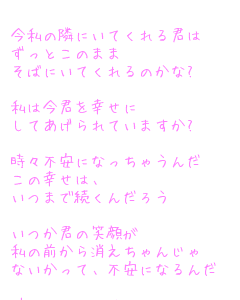 今私の隣にいてくれる君は
ずっとこのまま
そばにいてくれるのかな?
私は今君を幸せに
してあげられていますか?
時々不安になっちゃうんだ
この幸せは、
いつまで続くんだろう
いつか君の笑顔が
私の前から消えちゃんじゃ
ないかって、不安になるんだ